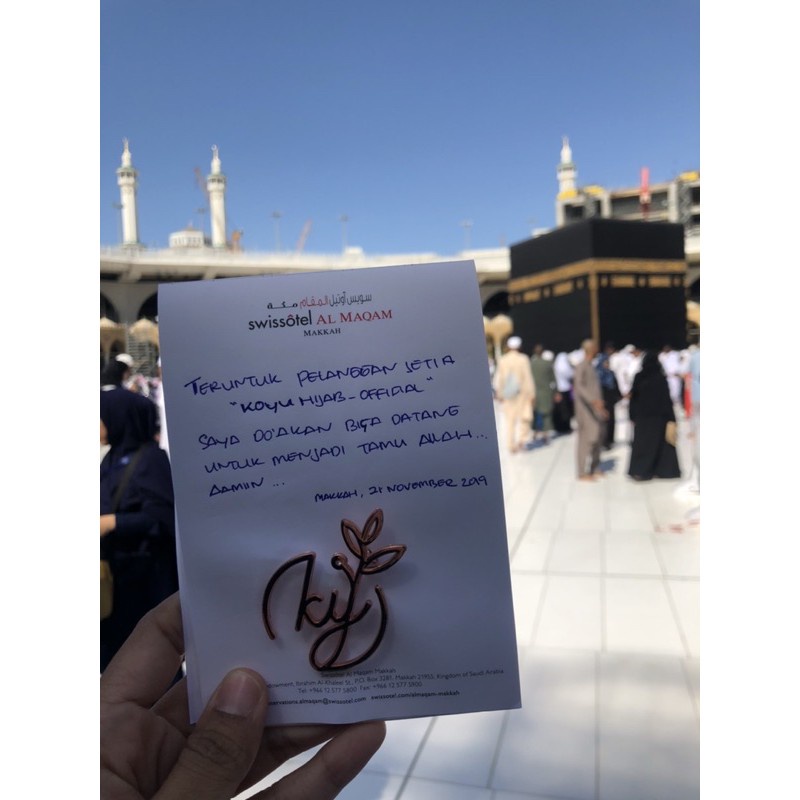 سويس أوتيل المقام مكة
swissôtel AL MAQAM
MAKKAH
TERUNTUK PELANGGAN SETIA
"KOYU HIJAB-OFFICIAL"
SAYA DO'AKAN BISA DATANG
UNTUK MENJADI TAMU ALLAH...
AAMIIN...
MAKKAH, 21 NOVEMBER 2019
ky
Swissôtel Al Maqam Makkah
Ibrahim Al Khaleel St., P.O. Box 3281, Makkah 21955, Kingdom of Saudi Arabia
Tel: +966 12 577 5800 Fax: +966 12 577 5800
swissotel.com/almaqam-makkah